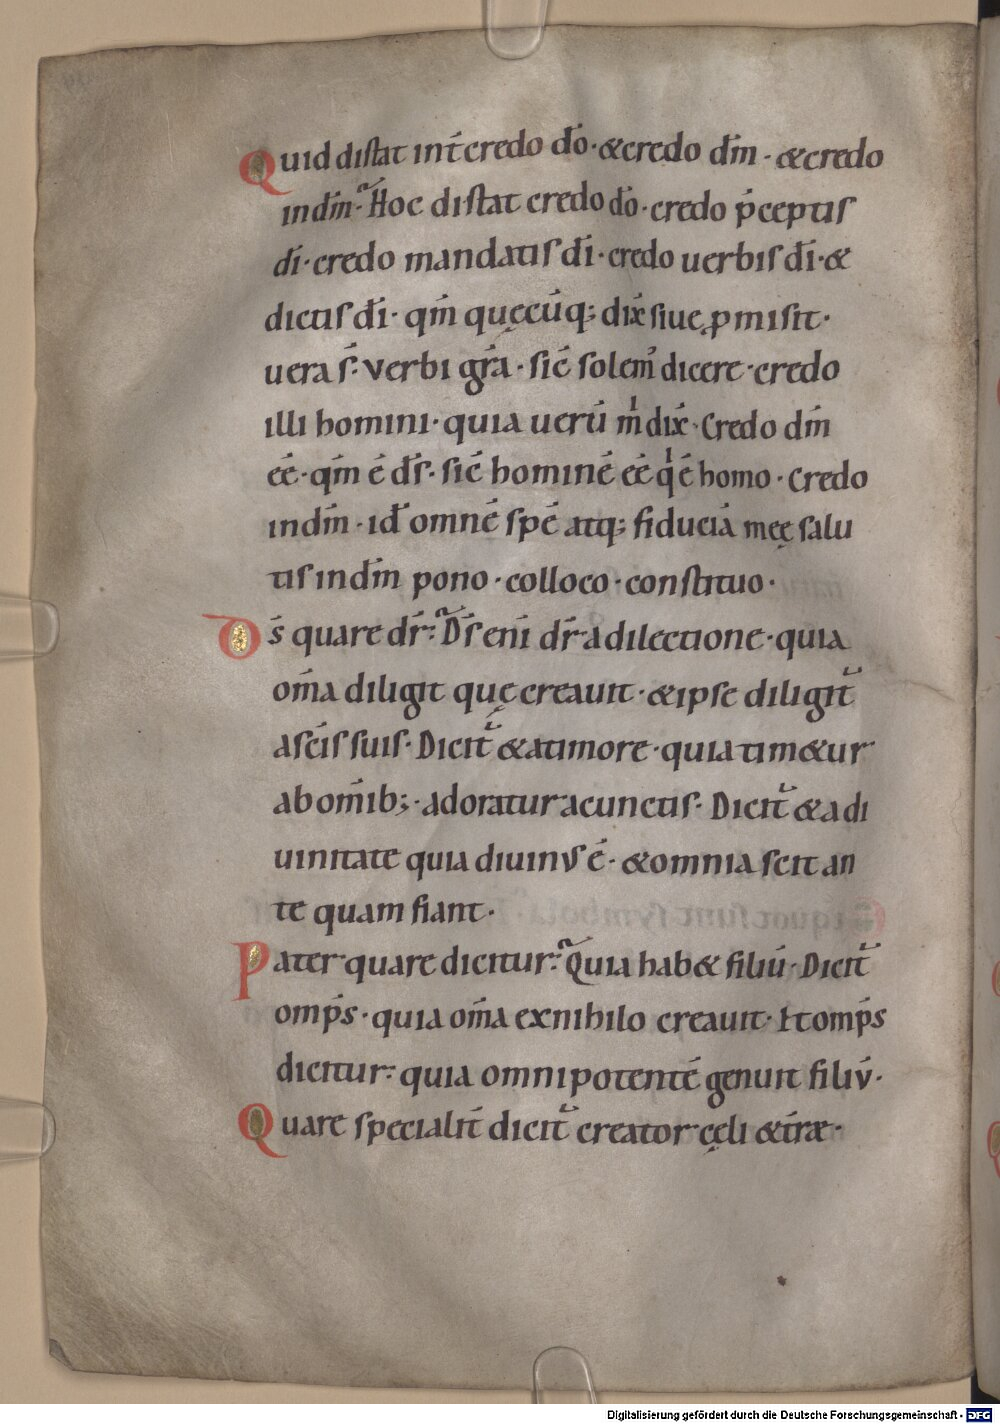 Quid distat int̄ credo dō · & credo dm̄ · & credo
in dm̄ · Hoc distat credo dō · credo p̄ceptis
dī · credo mandatis dī · credo uerbis dī · &
dictis dī · qm̄ quęcūq; dix̄ siue ꝓmisit ·
uera s̄ · Verbi grā · sić solem᷒ dicere · credo
illi homini · quia uerū m̍ dix̄ · Credo dm̄
eē · qm̄ ē ds̄ · sić hominē eē q̍ ē homo · Credo
in dm̄ · id̄ omnē spē atq; fiduciā meę salu
tis in dm̄ pono · colloco · constituo ·
Ds̄ quare dr̄ · Ds̄ eni̅ dr̄ a dilectione · quia
om̄a diligit quę creauit · & ipse diligit᷑
a scīs suis · Dicit᷑ & a timore · quia tim&ur
ab om̄ib; · adoratur a cunctis · Dicit᷑ & a di
uinitate quia diuinus ē · & omnia scit an
te quam fiant ·
Pater quare dicitur · Quia hab& filiū · Dicit᷑
omp̄s · quia om̄a ex nihilo creauit · It omp̄s
dicitur · quia omnipotentē genuit filiū ·
Quare specialit̄ dicit᷑ creator cęli & t̄ræ ·
Digitalisierung gefördert durch die Deutsche Forschungsgemeinschaft - DFG